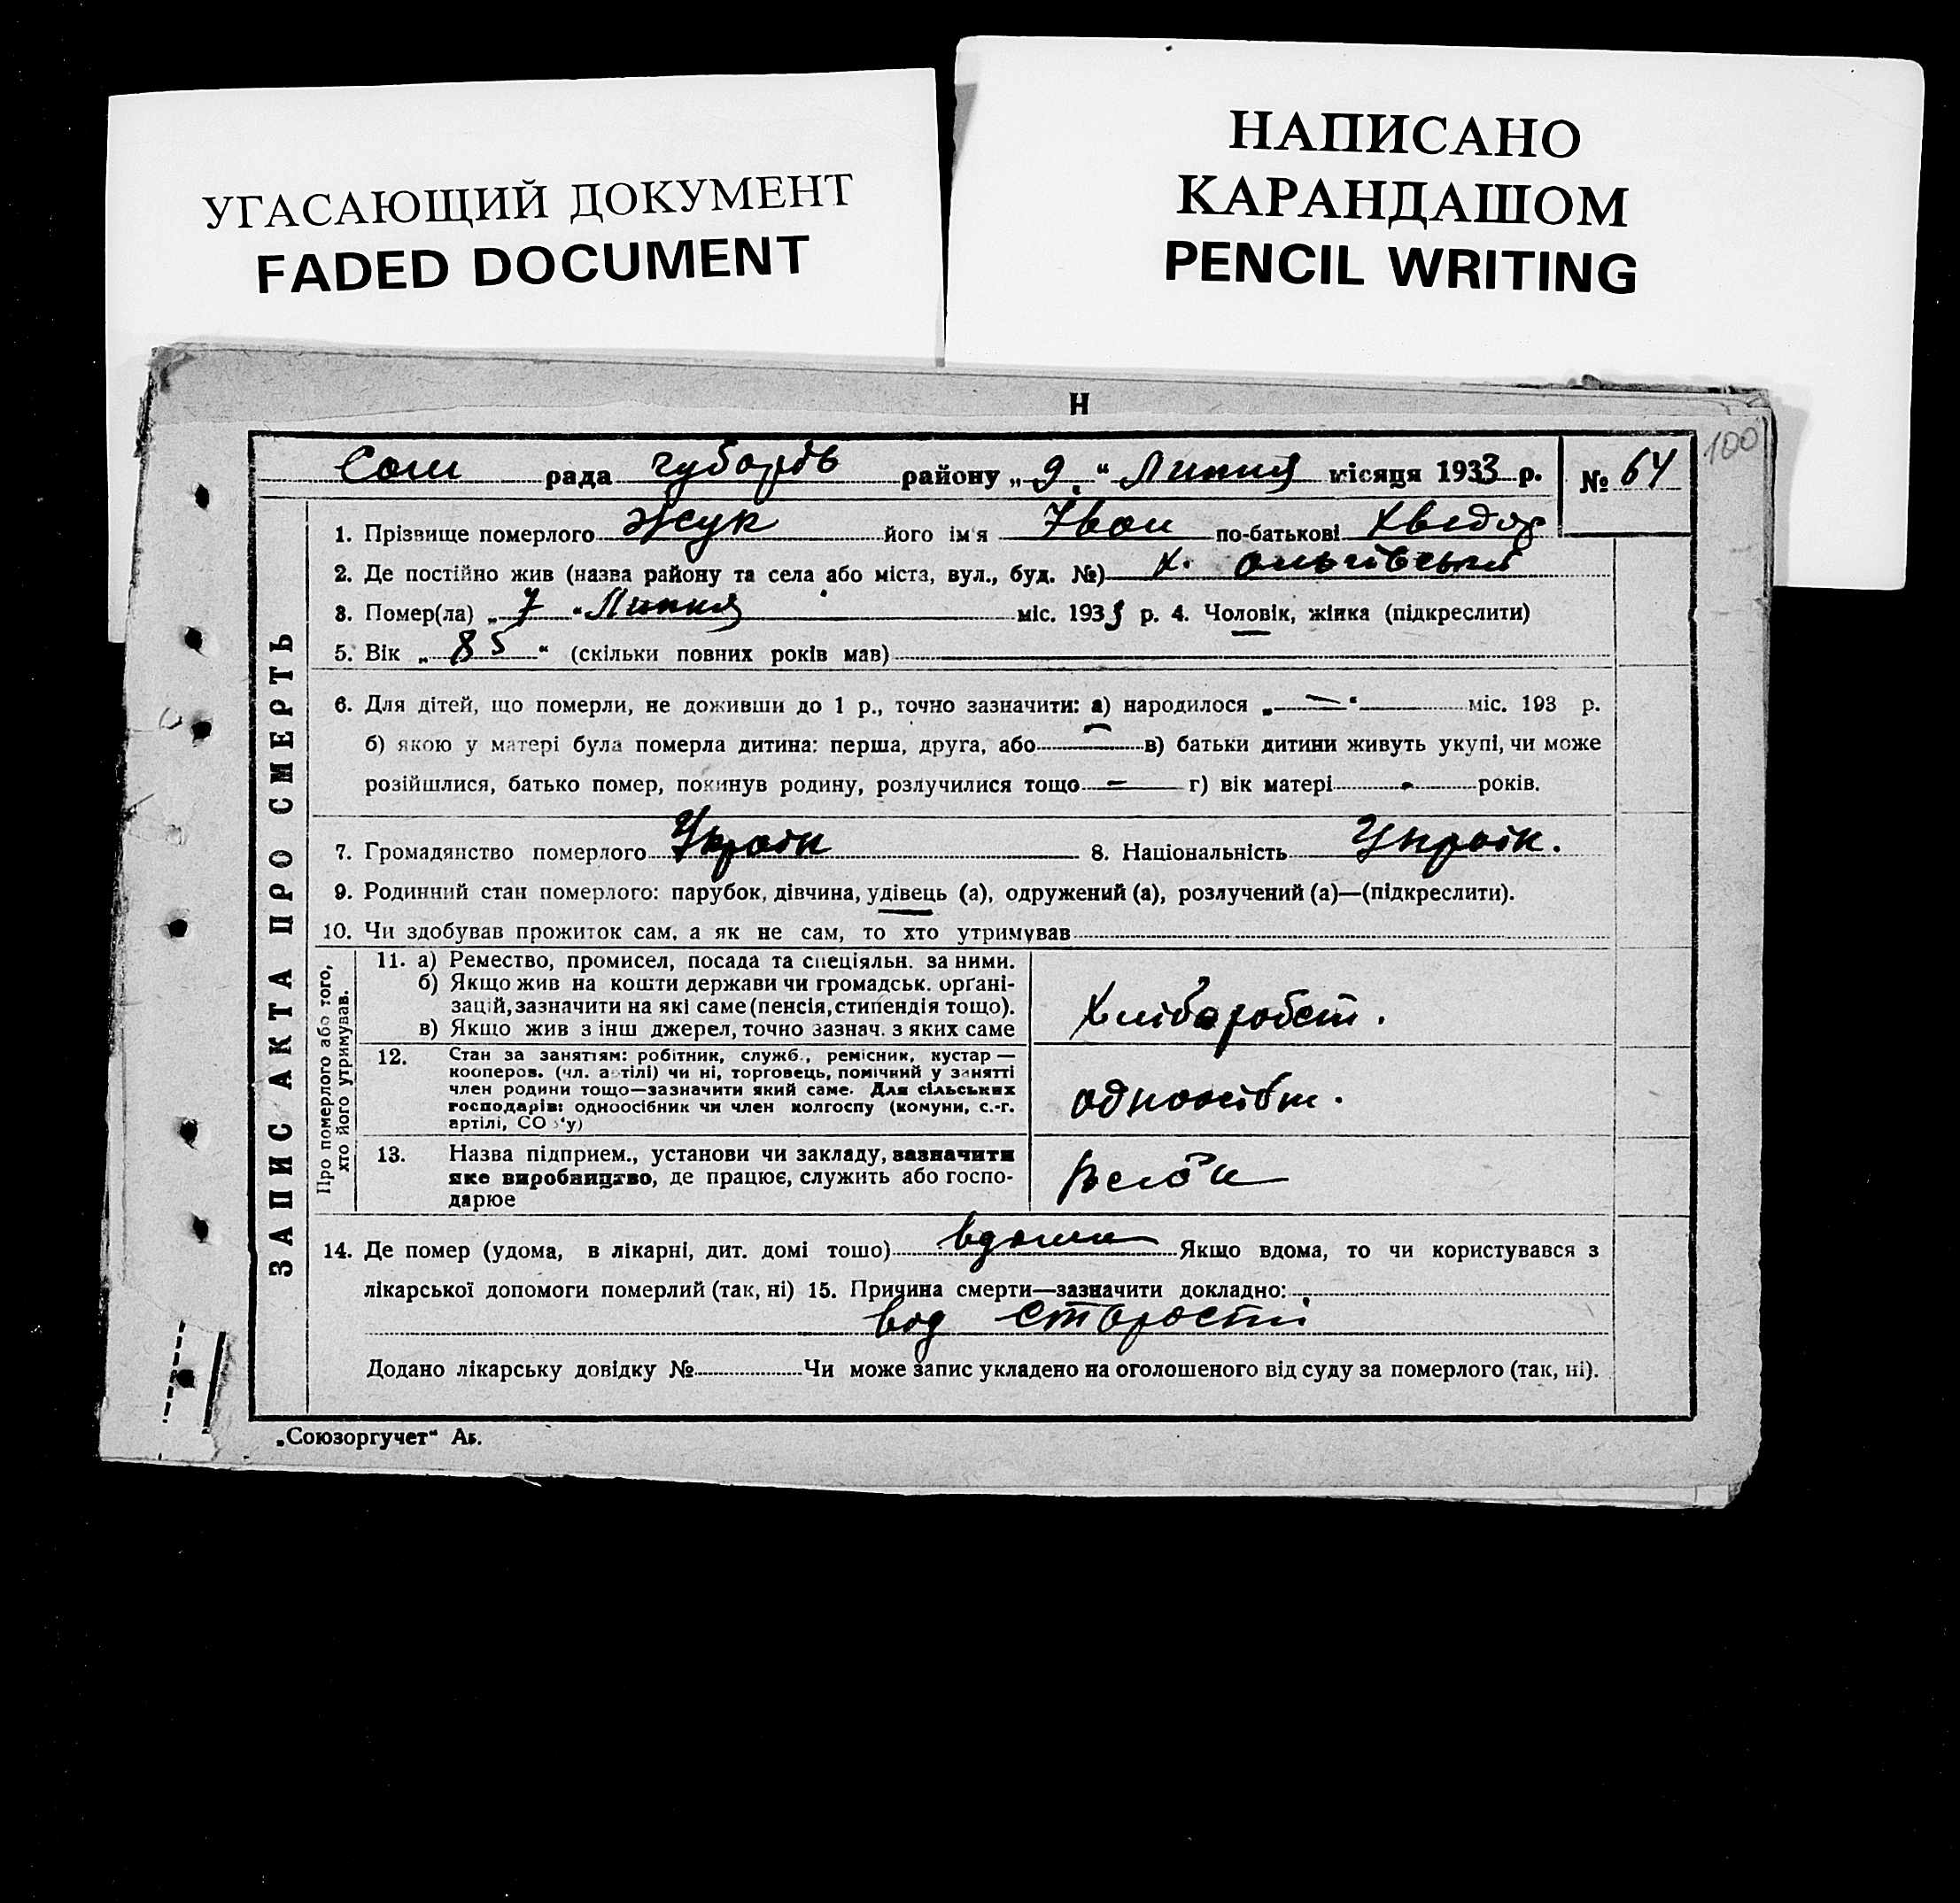 УГАСАЮЩИЙ ДОКУМЕНТ
FADED DOCUMENT
НАПИСАНО
КАРАНДАШОМ
PENCIL WRITING
Н
100
рада району „ 9 “ Липня місяця 1933 р. № 64
ЗАПИС АКТА ПРО СМЕРТЬ
1. Прізвище померлого Жук його ім'я Іван по-батькові Хведор
2. Де постійно жив (назва району та села або міста, вул., буд. №) х. Ольгівський
3. Помер(ла) „ 7 “ Липня міс. 1933 р. 4. Чоловік, жінка (підкреслити)
5. Вік „ 85 “ (скільки повних років мав)
6. Для дітей, що померли, не доживши до 1 р., точно зазначити: а) народилося „ — “ міс. 193 р.
б) якою у матері була померла дитина: перша, друга, або — в) батьки дитини живуть укупі, чи може
розійшлися, батько помер, покинув родину, розлучилися тощо — г) вік матері - років.
7. Громадянство померлого Україн 8. Національність Україн.
9. Родинний стан померлого: парубок, дівчина, удівець (а), одружений (а), розлучений (а)—(підкреслити).
10. Чи здобував прожиток сам, а як не сам, то хто утримував
Про померлого або того,
хто його утримував.
11. а) Ремество, промисел, посада та спеціяльн. за ними.
б) Якщо жив на кошти держави чи громадськ. орґані-
зацій, зазначити на які саме (пенсія, стипендія тощо).
в) Якщо жив з інш джерел, точно зазнач. з яких саме
Хлібаробст.
12. Стан за заняттям: робітник, служб., ремісник, кустар —
кооперов. (чл. артілі) чи ні, торговець, помічний у занятті
член родини тощо—зазначити який саме. Для сільських
господарів: одноосібник чи член колгоспу (комуни, с.-г.
артілі, СОЗ'у)
одноосібн.
13. Назва підприєм., установи чи закладу, зазначити
яке виробництво, де працює, служить або госпо-
дарює
14. Де помер (удома, в лікарні, дит. домі тошо) вдома Якщо вдома, то чи користувався з
лікарської допомоги померлий (так, ні) 15. Причина смерти—зазначити докладно:
вод старости
Додано лікарську довідку № Чи може запис укладено на оголошеного від суду за померлого (так, ні).
„Союзоргучет“ Аз.